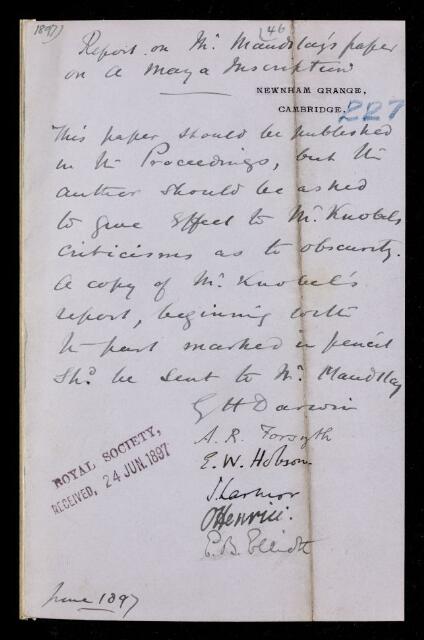 1897)
146
Report on Mr. Maudslay's paper
on a Maya Inscription
NEWNHAM GRANGE,
CAMBRIDGE.
227
This paper should be published
in the Proceedings, but the
author should be asked
to give effect to Mr. Knobel's
criticisms as to obscurity.
A copy of Mr. Knobel's
report, beginning with
the part marked in pencil
shd. be sent to Mr. Maudslay
G H Darwin
A. R. Forsyth
E. W. Hobson.
J. Larmor
O Henrici.
E. B. Elliott
ROYAL SOCIETY,
RECEIVED, 24 JUN. 1897
June 1897